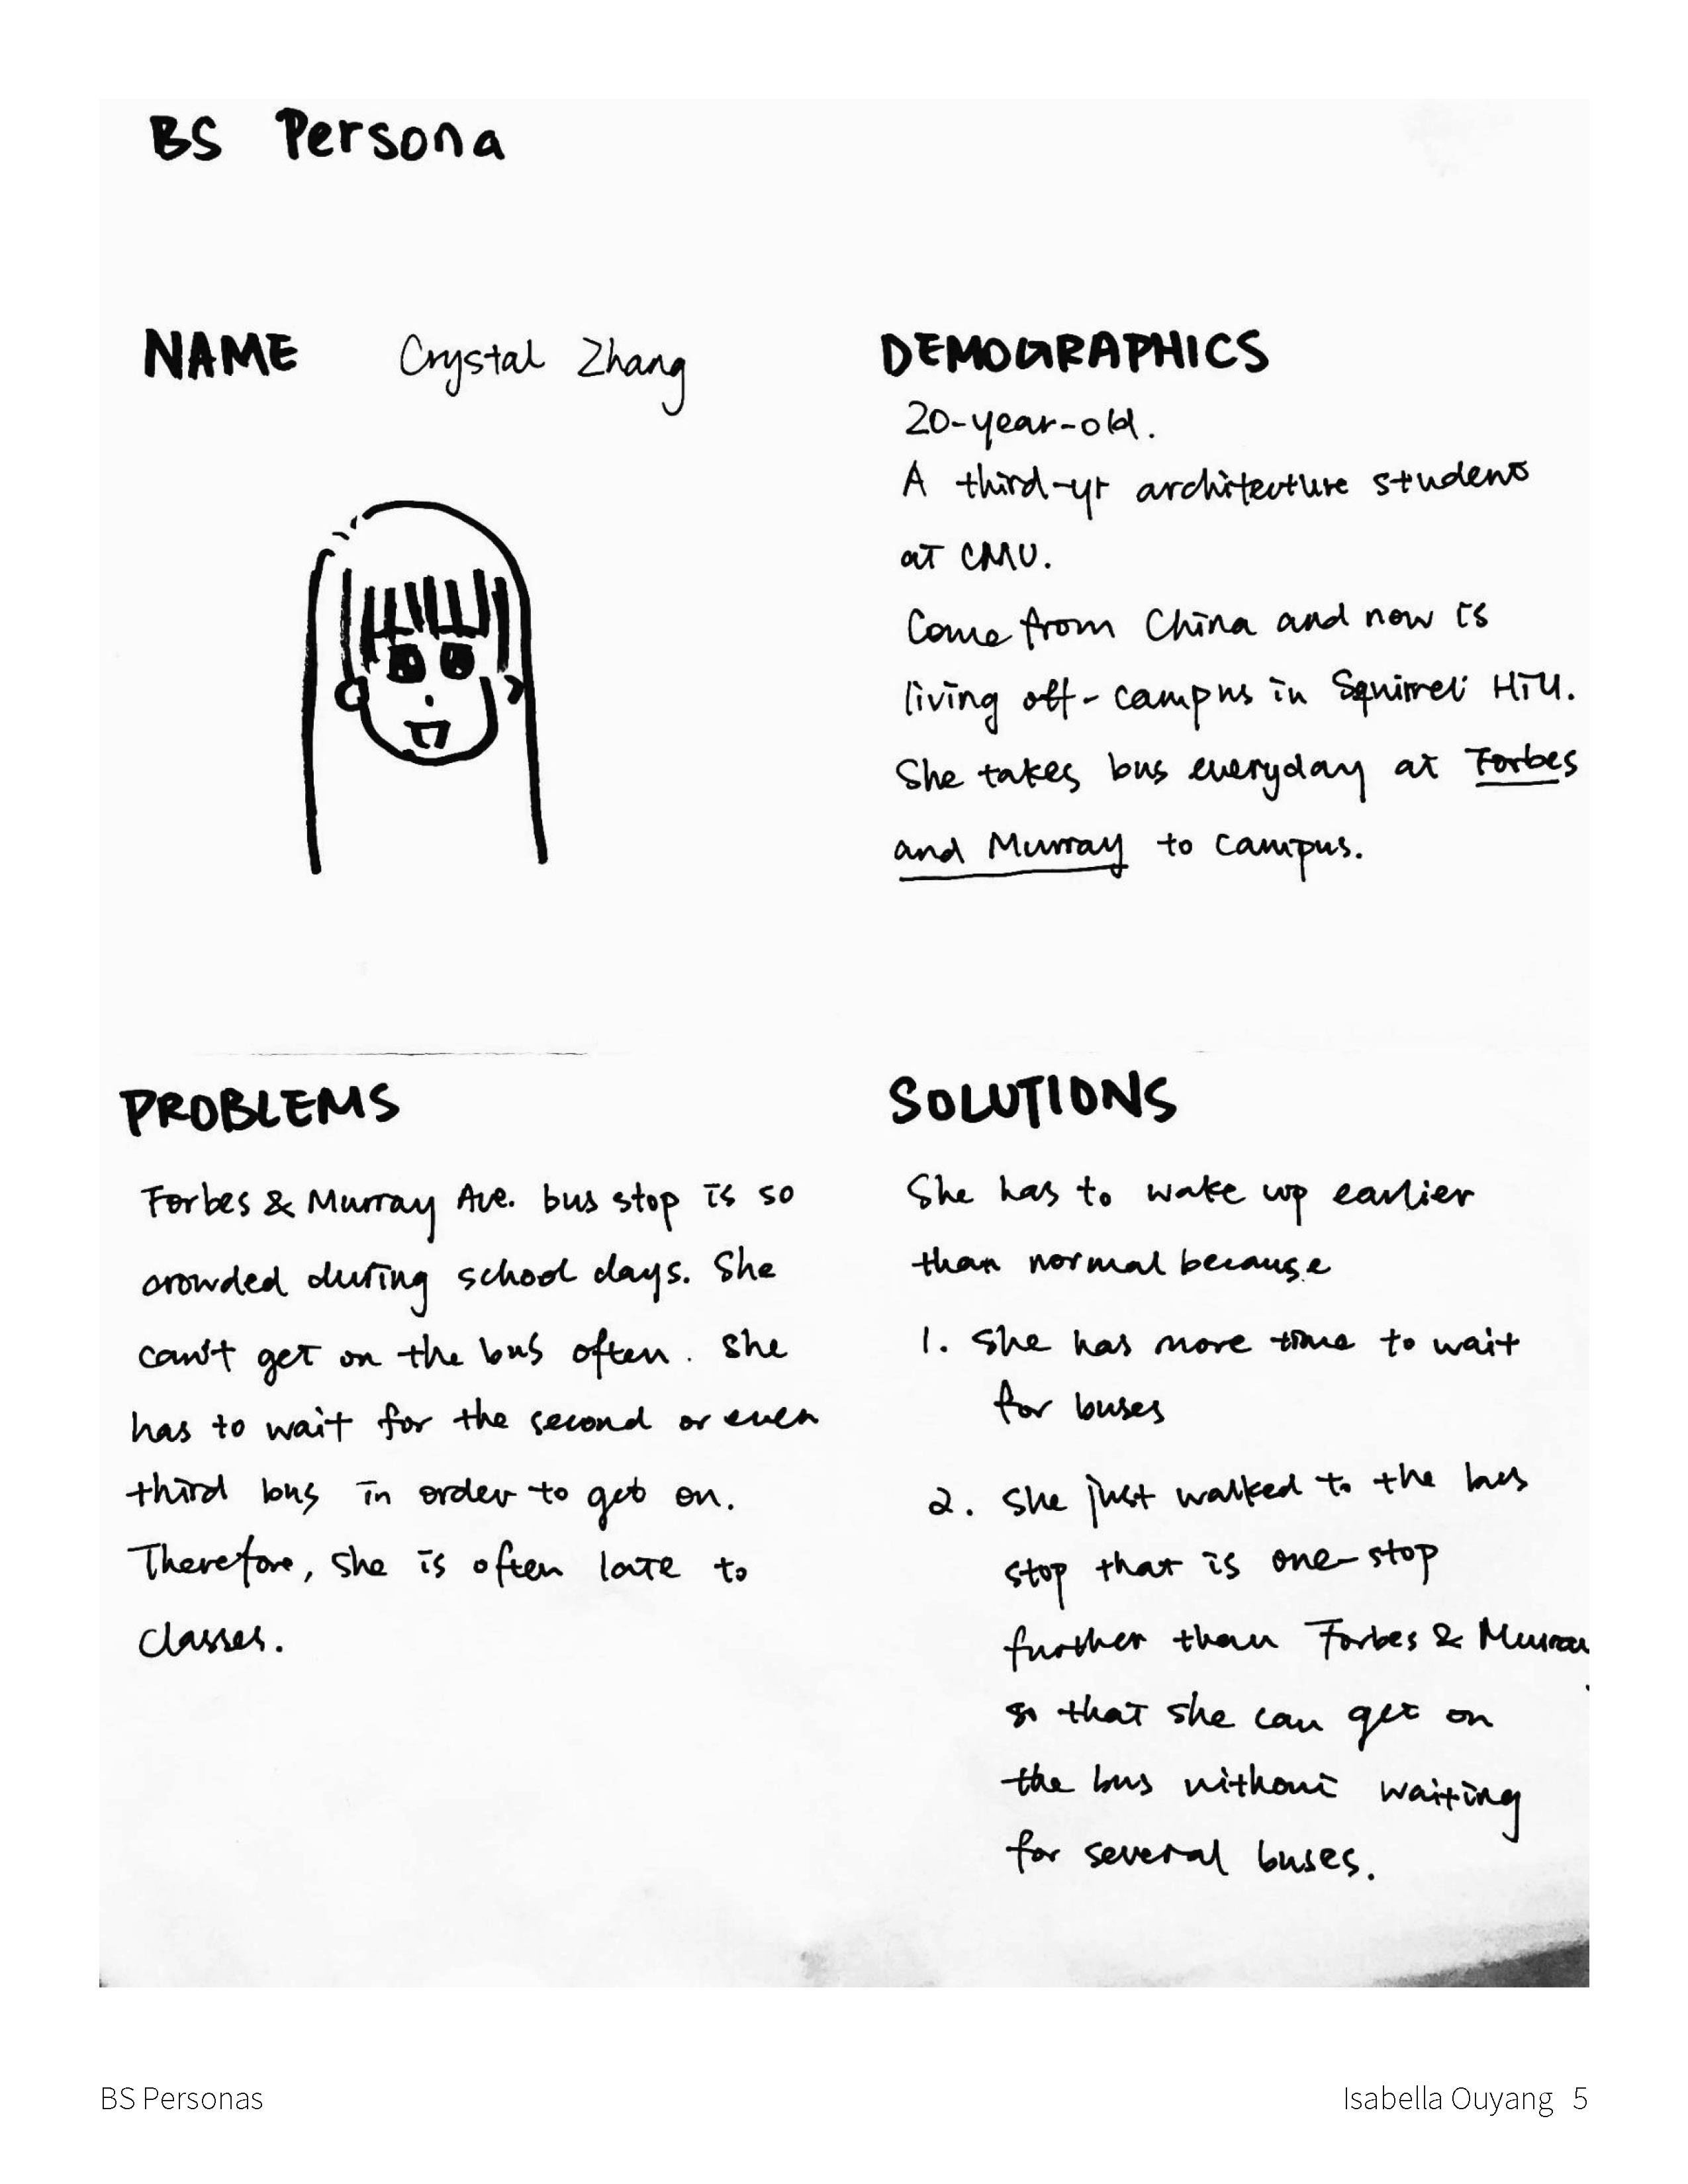 BS Persona
NAME Crystal Zhang
DEMOGRAPHICS
20-year-old.
A third-yr architecture student
at CMU.
Come from China and now is
living off-campus in Squirrel Hill.
She takes bus everyday at Forbes
and Murray to campus.
PROBLEMS
Forbes & Murray Ave. bus stop is so
crowded during school days. She
can't get on the bus often. She
has to wait for the second or even
third bus in order to get on.
Therefore, she is often late to
classes.
SOLUTIONS
She has to wake up earlier
than normal because
1. She has more time to wait
for buses
2. She just walked to the bus
stop that is one-stop
further than Forbes & Murray
so that she can get on
the bus without waiting
for several buses.
BS Personas
Isabella Ouyang 5